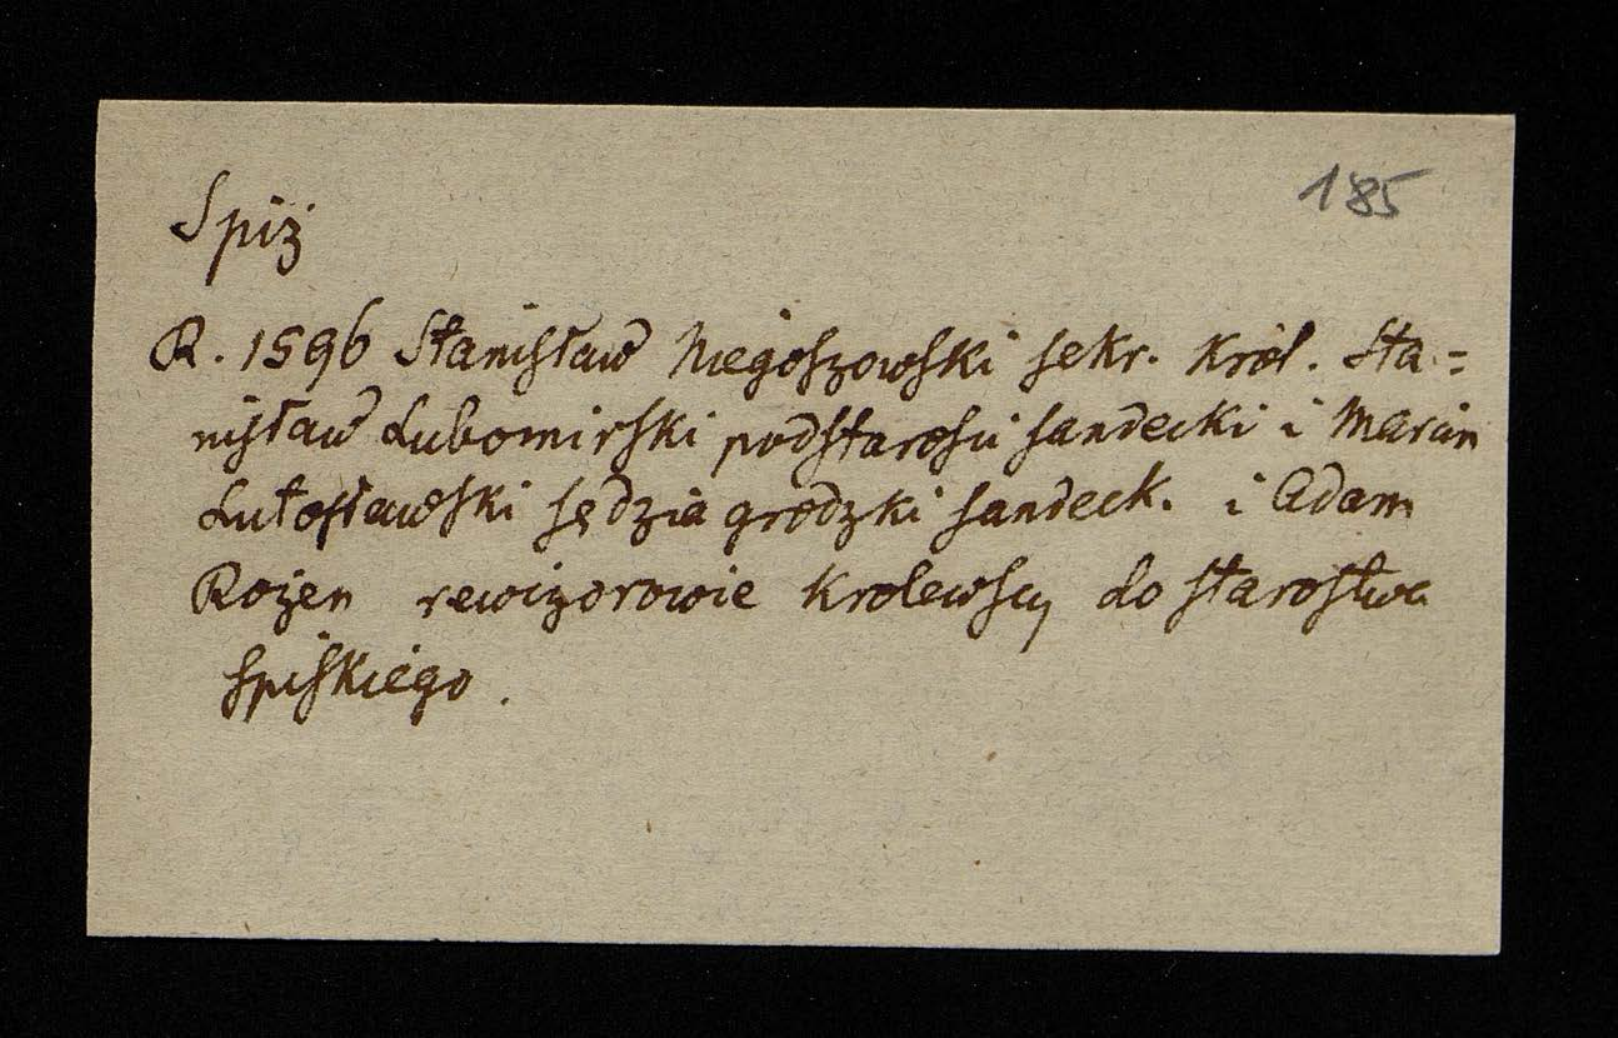 185
Spiż
R. 1596 Stanisław Niegoszowski sekr. król. Sta=
nisław Lubomirski podstarości sandecki i Marcin
Lutosławski sędzia grodzki sandeck. i Adam
Rożen rewizorowie królewscy do starostwa
spiskiego.